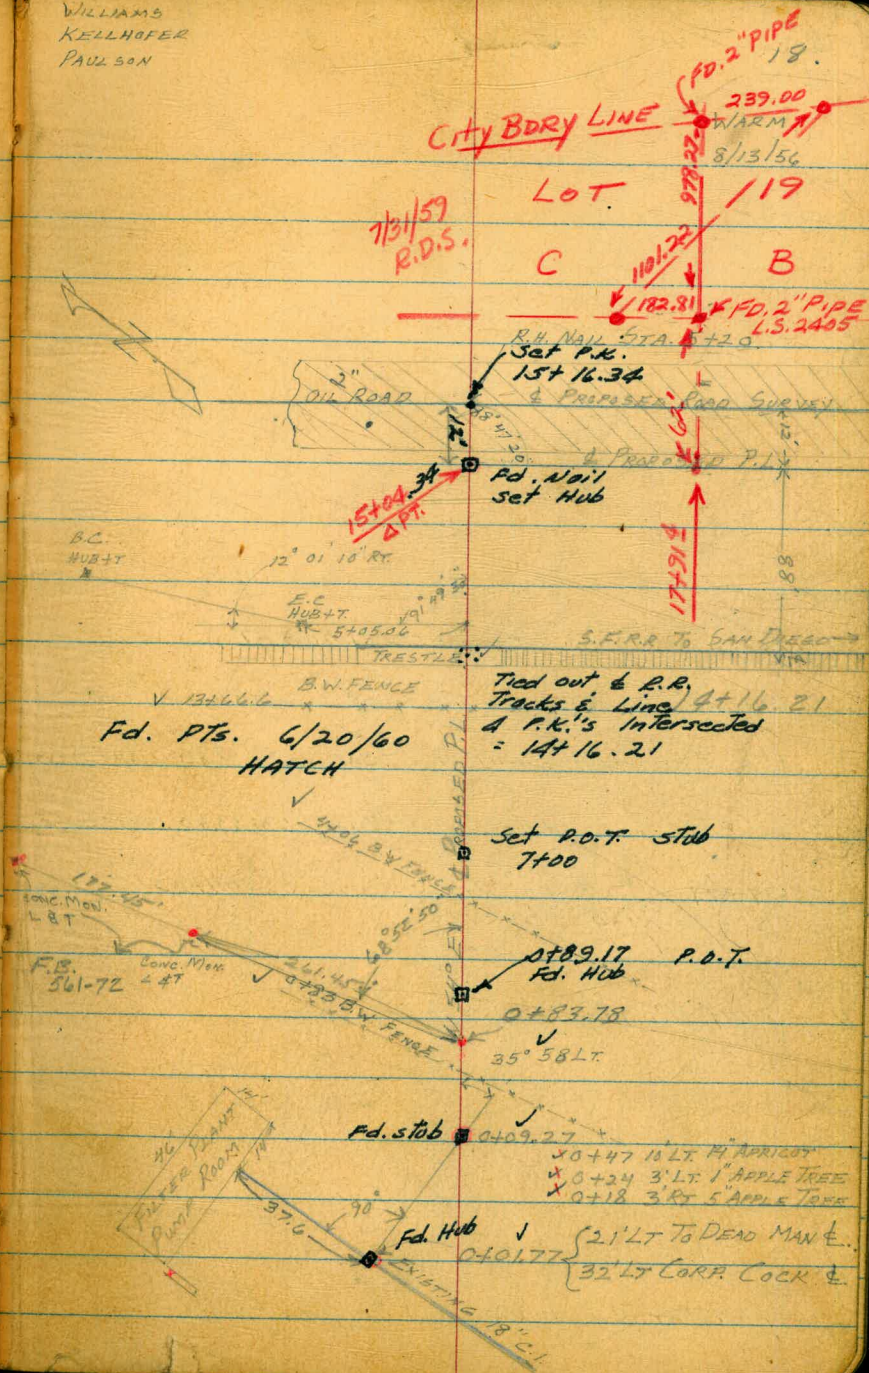 WILLIAMS
KELLHOFER
PAULSON
18.
FD. 2" PIPE
239.00
CITY BDRY LINE
WARM
8/13/56
978.27
LOT
119
7/31/59
R.D.S.
1101.22
C
B
182.81
FD. 2" PIPE
L.S. 2405
R.H. NAIL STA. 5+20
Set P.K.
15+16.34
2"
OIL ROAD
℄ PROPOSED ROAD SURVEY
12'
62'
12'
℄ PROPOSED P.L.
Fd. Nail
Set Hub
15+04.34
Δ PT.
17+91
B.C.
HUB+T
12° 01' 10" RT.
88'
E.C.
HUB+T.
5+05.06
91° 49'
S.F.R.R TO SAN DIEGO
TRESTLE
B.W. FENCE
✓ 13+66.6
Tied out ℄ R.R.
Tracks & Line 14+16.21
4 P.K.'s Intersected
= 14+16.21
Fd. PTs. 6/20/60
HATCH
PROPOSED P.L.
4+06 B.W FENCE
Set P.O.T. stub
7+00
CONC. MON.
L & T
68° 52' 50"
F.B.
561-72
CONC. MON.
L & T
261.45
0+83 B.W. FENCE
0+89.17 P.O.T.
Fd. Hub
0+83.78
35° 58 LT.
Fd. stub
0+09.27
0+47 10' LT. 14" APRICOT
0+24 3' LT. 1" APPLE TREE
0+18 3' RT 5" APPLE TREE
14'
46'
FILTER PLANT
PUMP ROOM
14'
37.6
90°
Fd. Hub
0+01.77
21' LT TO DEAD MAN ℄
32' LT CORP. COCK ℄
EXISTING 18" C.I.